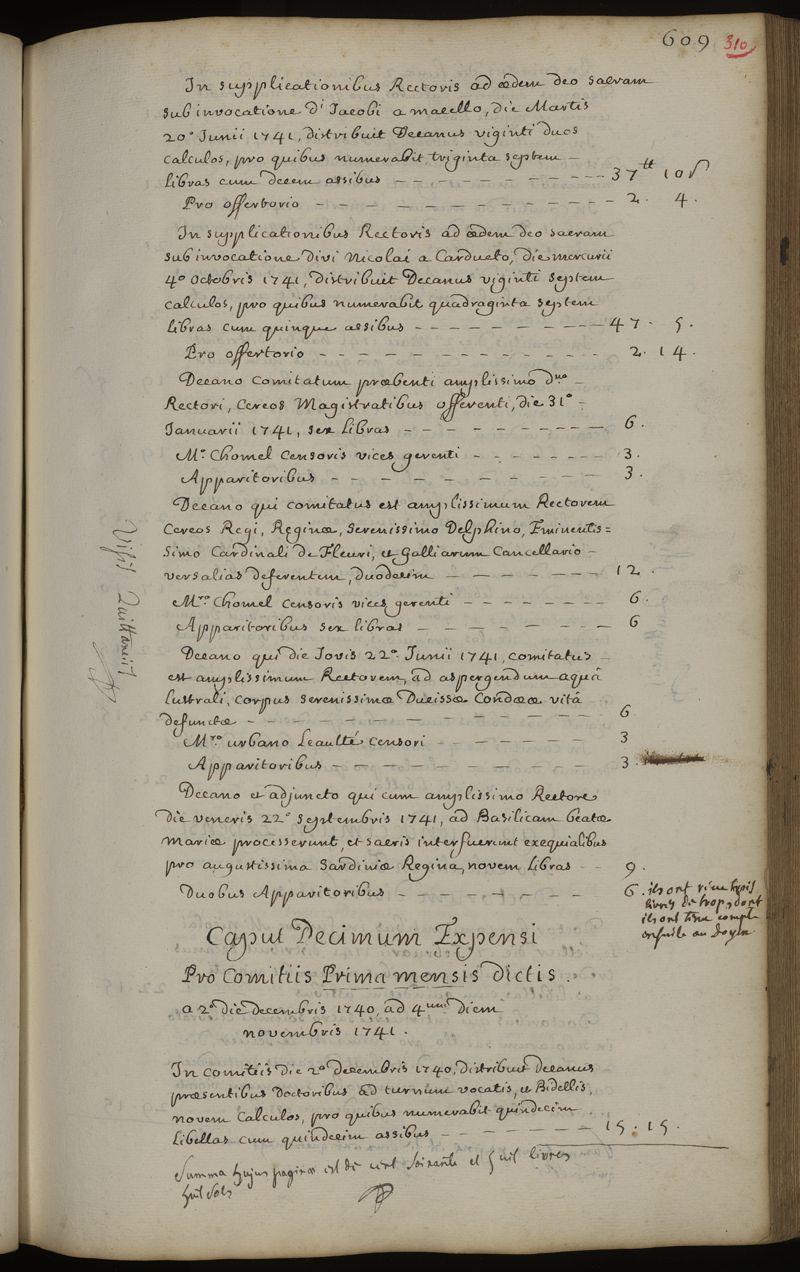 609 310
In supplicationibus Rectoris ad ædem deo sacram
sub invocatione d' Jacobi a macello, die Martis
20ª Junii 1741, distribuit Decanus viginti duos
calculos, pro quibus numerabit triginta septem —
libras cum decem assibus — — — — — — — — — 37 tt 10 s
Pro offertorio — — — — — — — — — — — 2. 4.
In supplicationibus Rectoris ad ædem deo sacram
sub invocatione divi Nicolai a Cardueto, die mercurii
4ª Octobris 1741, distribuit Decanus viginti septem
calculos, pro quibus numerabit quadraginta septem
libras cum quinque assibus — — — — — — — — — 47. 5.
Pro offertorio — — — — — — — — — — — 2. 14.
Decano Comitatum præbenti amplissimo d.no —
Rectori, Cereos Magistratibus offerenti, die 31ª —
Januarii 1741, sex libras — — — — — — — — 6.
M.ro Chomel Censoris vices gerenti — — — — — — — 3.
Apparitoribus — — — — — — — — — — 3.
Decano qui comitatus est amplissimum Rectorem
Cereos Regi, Reginæ, serenissimo Delphino, Eminentis=
simo Cardinali de Fleuri, et Galliarum Cancellario —
versalias deferentem, duodecim — — — — — — 12.
M.ro Chomel Censoris vices gerenti — — — — — — — 6.
Apparitoribus sex libras — — — — — — — 6
Decano qui die Jovis 22ª Junii 1741, comitatus
est amplissimum Rectorem, ad aspergendum aquâ
lustrali, corpus serenissimæ Ducissæ Condææ vitâ
defunctæ — — — — — — — — — — — 6
M.ro urbano Leaulté Censori — — — — — — 3
Apparitoribus — — — — — — — — — 3.
Decano et adjuncto qui cum amplissimo Rectore
die veneris 22ª Septembris 1741, ad Basilicam beatæ
mariæ processerunt, et sacris interfuerunt exequialibus
pro augustissima Sardiniæ Regina, novem libras — — 9.
Duobus Apparitoribus — — — — — — — 6. ils ont trois
livres de trop, dont
ils ont tenu compte
ensuite au doyen
Caput Decimum Expensi
Pro Comitiis Prima mensis dictis.
a 2ª die decembris 1740, ad 4um diem
novembris 1741.
In comitiis die 2ª decembris 1740, distribuit decanus
præsentibus doctoribus ad turnum vocatis, et Bidellis,
novem Calculos, pro quibus numerabit quindecim
libellas cum quindecim assibus — — — — — — 15. 15.
Summa hujus paginæ est de cent soixante et huit livres
huit sols